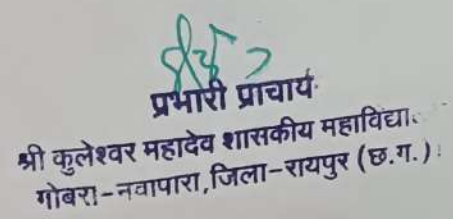 प्रभारी प्राचार्य
श्री कुलेश्वर महादेव शासकीय महाविद्या
गोबरा-नवापारा,जिला-रायपुर (छ.ग.)